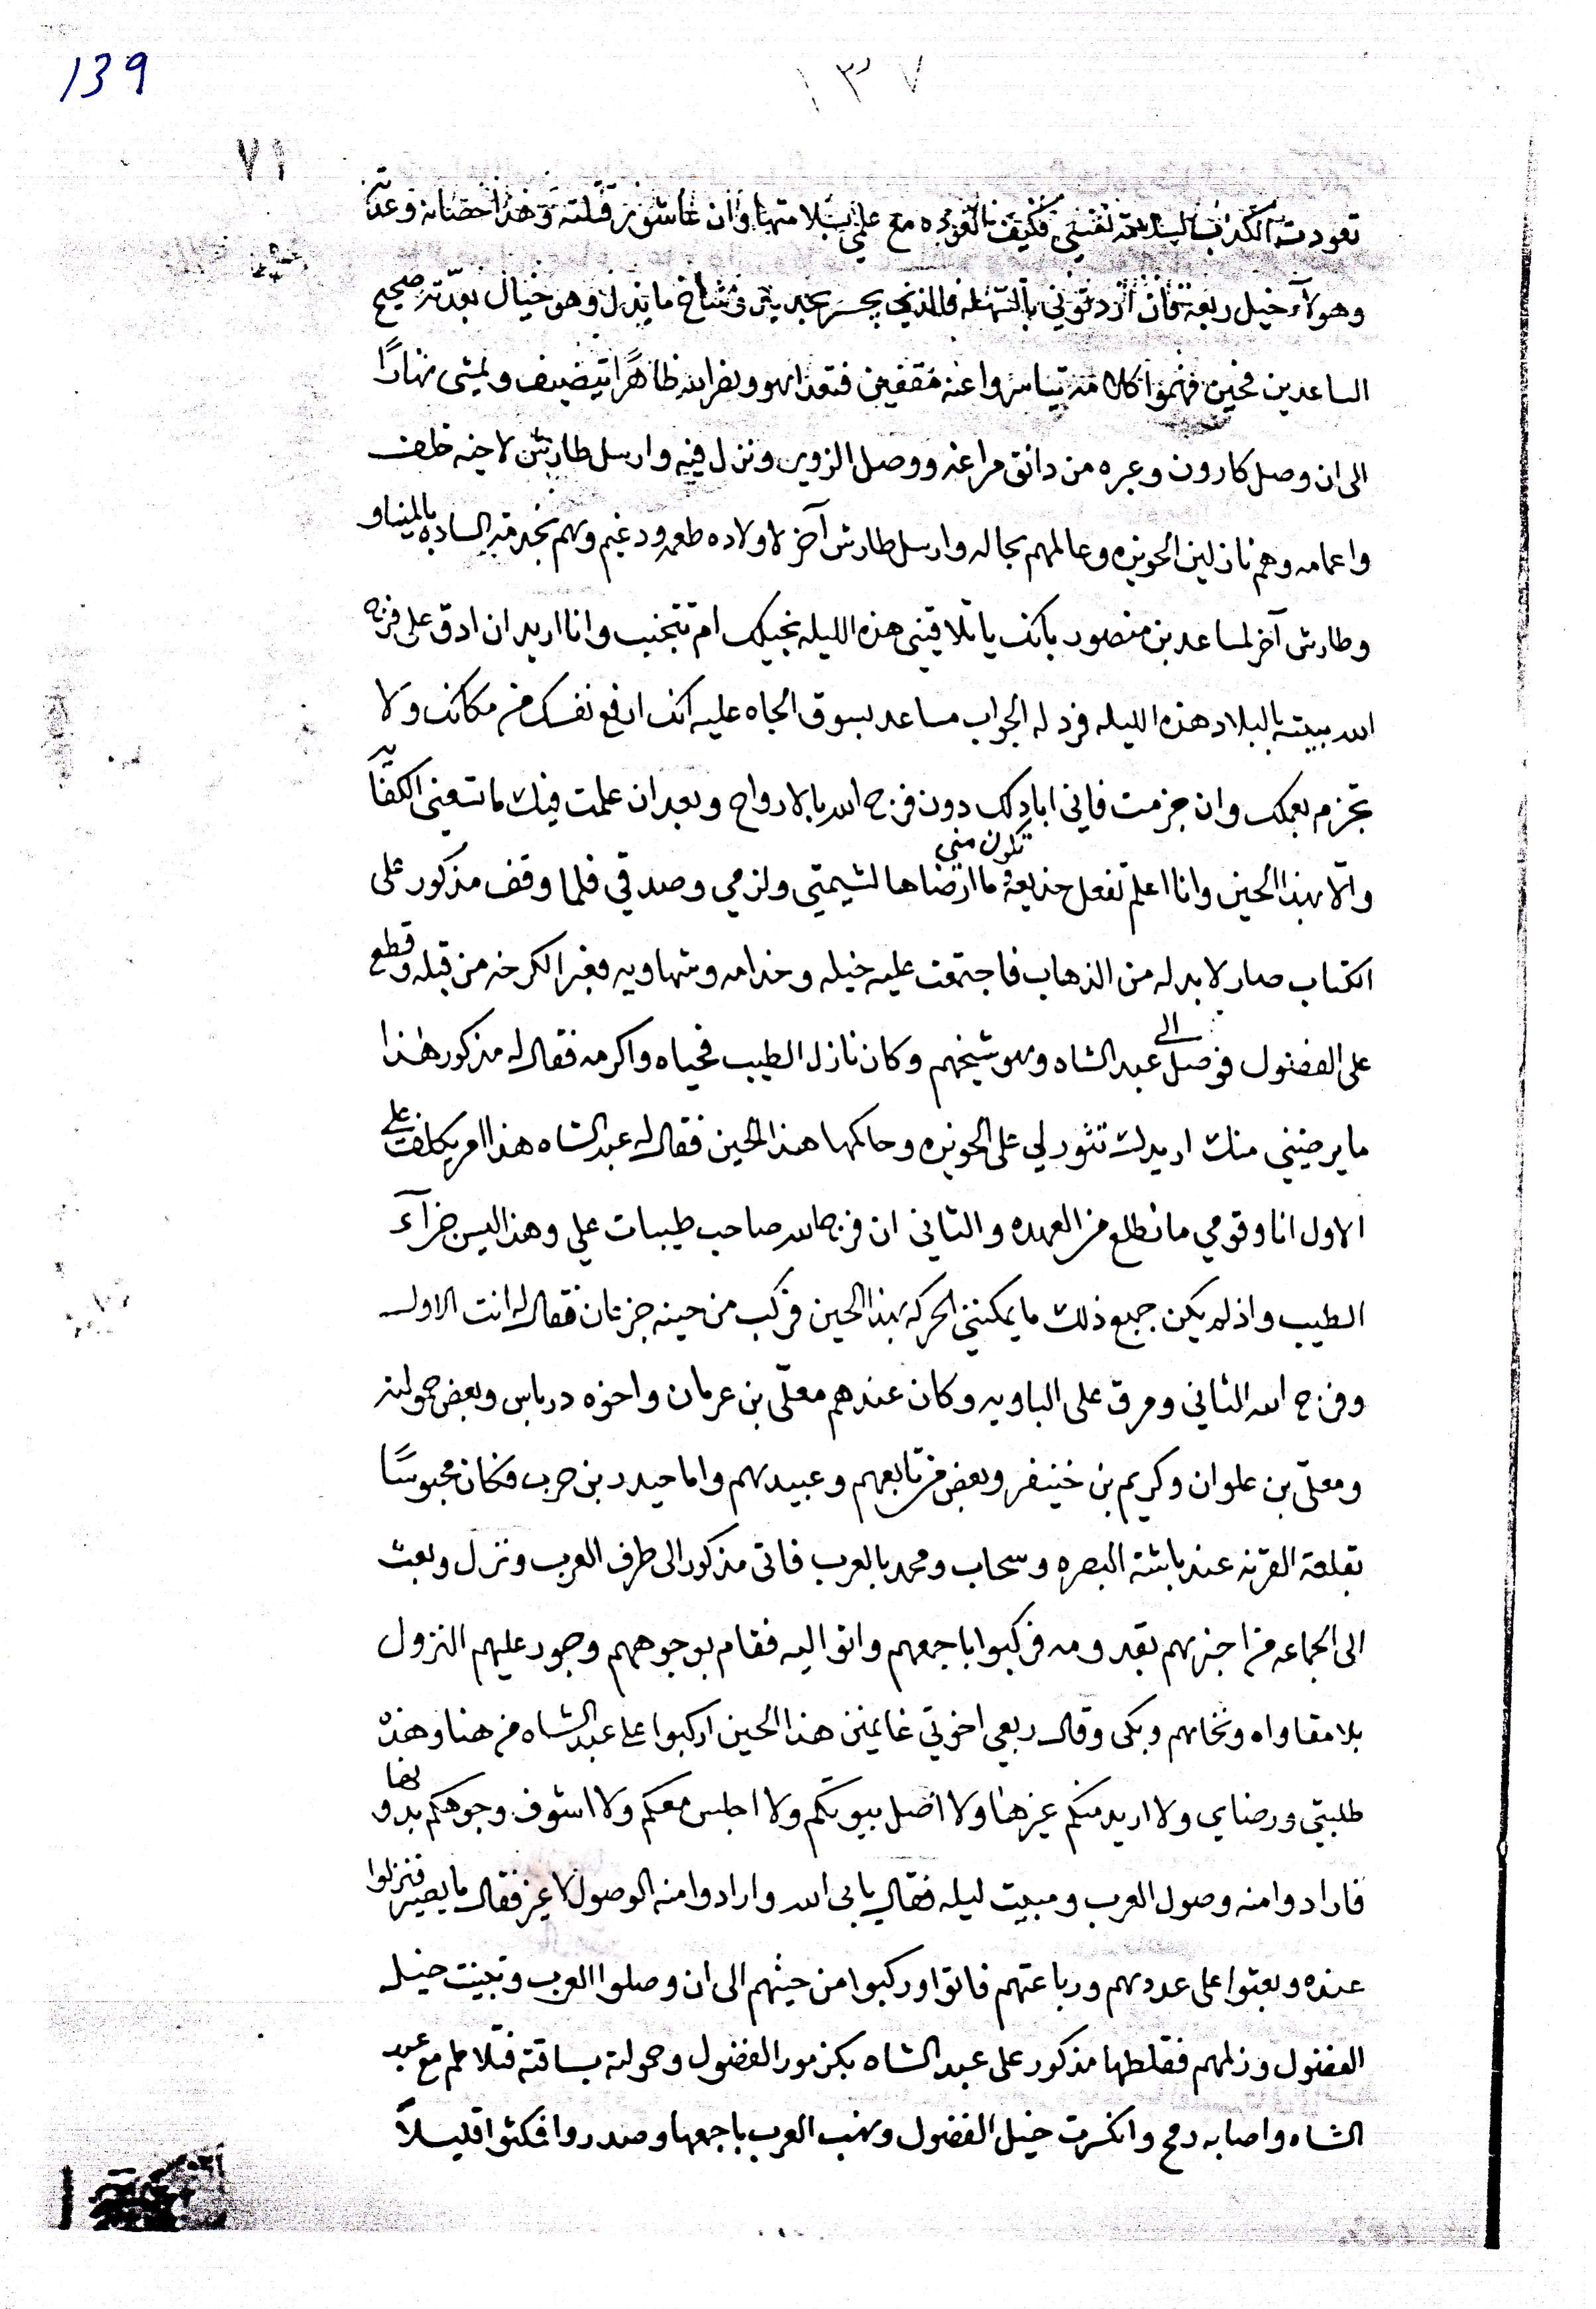 139
١٣٧
٧١
تعودت الكذب لسلامة نفسي فكيف بالعوده مع علمي بسلامتها وان عاشور قتلته وهذا حصانه وعدته
وهولآء خيل ربيعة فان اردتوني بالسهله فالذي يجسر يجرب يمر وشاخ ما ينذل وهو خيال بعدته صحيح
الساعدين فحين فهموا كلامه تياسروا عنه مقفين فتعداهو ونفر الله ظاهرًا يتضيف ويمشى نهارًا
الى ان وصل كارون وعبره من دانق مراغه ووصل الزوير ونزل فيه وارسل طارش لاخيه خلف
واعمامه وهم نازلين الحويزه وعالمهم بحاله وارسل طارش آخر لاولاده طعمه ودغيم وهم بخدمة الساده بالمينا و
وطارش آخر لمساعد بن منصور بانك يا تلاقيني هذه الليله نجيك ام تتجنب وانا اريد ان ادق على فرج
الله ببيته بالبلاد هذه الليله فرد له الجواب مساعد بسوق الجاه عليه انك ارفع نفسك من مكانك ولا
تجزم بعملك وان جزمت فاني ابادلك دون فرج الله بالارواح وبعد ان علمت فيك ما تنعنى الكفايه
والا بهذا الحين وانا اعلم تفعل خديعة تكون مني وما ارضاها لشيمتي ولزمي وصدقي فلما وقف مذكور على
الكتاب صار لا بد له من الذهاب فاجتمعت عليه خيله وخدامه وشهاويه فعبر الكرخه من قبله وقطع
على الفضول فوصل الى عبد الشاه وهو شيخهم وكان نازل الطيب فحياه واكرمه فقال له مذكور هذا
ما يرضيني منك اريدك تثور لي على الحويزه وحاكمها هذا الحين فقال له عبد الشاه هذا امر يكلف علي
الاول انا وقومي ما نطلع من العهده والثاني ان فرج الله صاحب طيبات علي وهذا ليس جزآء
الطيب واذ لم يكن جميع ذلك ما يمكنني الحركه بهذا الحين فركب من حينه جزعان فقال له انت الاول
وفرج الله الثاني ومرق على الباويه وكان عندهم معلّى بن عرمان واخوه درباس وبعض حمولته
ومعلّى بن علوان وكريم بن خنيفر وبعض من تابعهم وعبيدهم واما حيدر بن حرب فكان محبوسًا
بقلعة القرنه عند باشة البصره وسحاب ومحمد بالعرب فاتى مذكور الى طرف العرب ونزل وبعث
الى الجماعه من اخبرهم بقدومه فركبوا باجمعهم واتوا اليه فقام بوجوههم وجود عليهم النزول
بلا مقاواه ونخاهم وبكى وقال ربعي اخوتي غانمين هذا الحين اركبوا على عبد الشاه من هنا وهذه
طلبتي ورضاي ولا اريد منكم غيرها ولا اصل بيوتكم ولا اجلس معكم ولا اشوف وجوهكم بدونها
فارادوا منه وصول العرب ومبيت ليله فقال يابى الله وارادوا منه الوصول لا غير فقال ما يصير فنزلوا
عنده وبعثوا على عددهم ورباعتهم فاتوا وركبوا من حيثهم الى ان وصلوا العرب وتبينت خيل
الفضول وزلمهم فقلطها مذكور على عبد الشاه بكزمور الفضول وحمولته بساقته فتلاطم مع عبد
الشاه واصابه رمح وانكسرت خيل الفضول ونهب العرب باجمعها وصدروا فمكثوا قليلاً